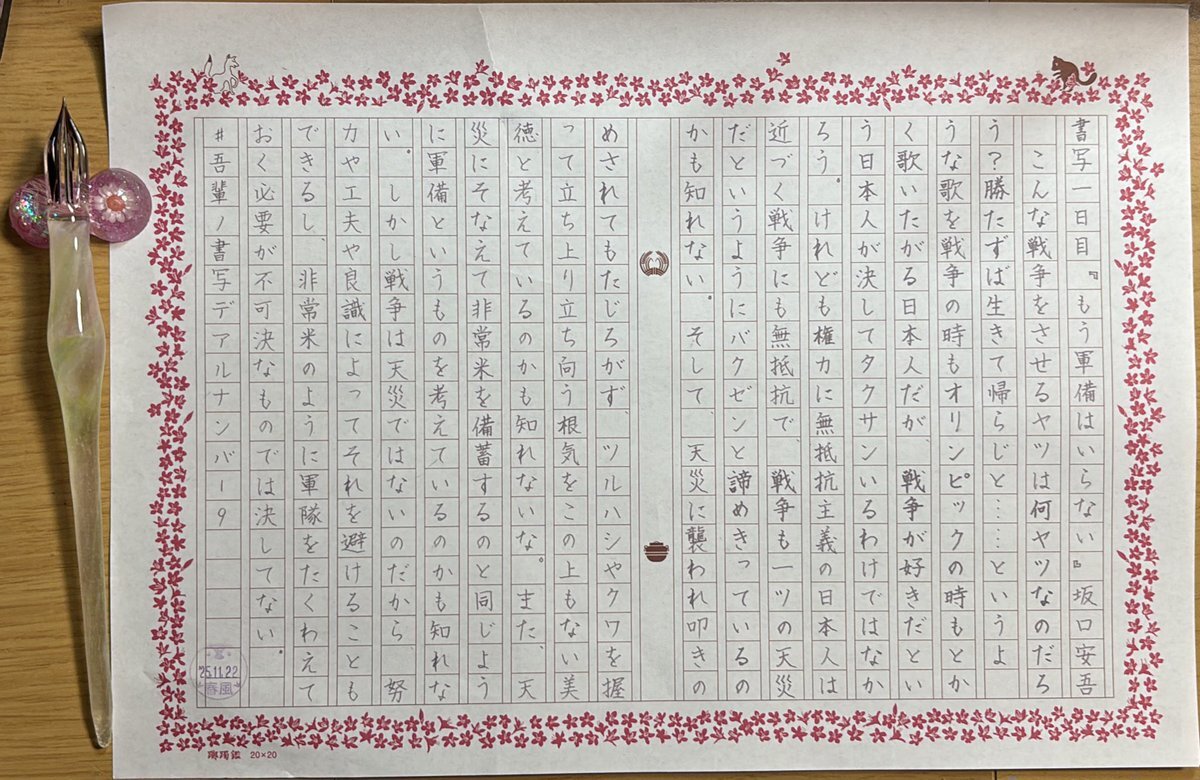 書写一日目『もう軍備はいらない』坂口安吾
こんな戦争をさせるヤツは何ヤツなのだろ
う?勝たずば生きて帰らじと……というよ
うな歌を戦争の時もオリンピックの時もとか
く歌いたがる日本人だが、戦争が好きだとい
う日本人が決してタクサンいるわけではなか
ろう。けれども権力に無抵抗主義の日本人は
近づく戦争にも無抵抗で、戦争も一ツの天災
だというようにバクゼンと諦めきっているの
かも知れない。そして、天災に襲われ叩きの
めされてもたじろがず、ツルハシやクワを握
って立ち上り立ち向う根気をこの上もない美
徳と考えているのかも知れないな。また、天
災にそなえて非常米を備蓄するのと同じよう
に軍備というものを考えているのかも知れな
い。しかし戦争は天災ではないのだから　努
力や工夫や良識によってそれを避けることも
できるし、非常米のように軍隊をたくわえて
おく必要が不可決なものでは決してない。
#吾輩ノ書写デアルナンバー9
'25.11.22
春風
20×20